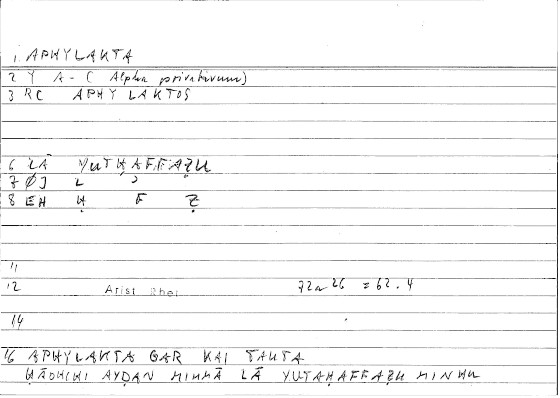 1 APHYLAKTA
2 Y A-C (Alpha privativum)
3 RC APHYLAKTOS
6 LĀ YUTḤAFFAẒU
7 ØJ 2 2
8 EH Ḥ F Ẓ
11
12 Arist Rhet 72a26 = 62.4
14
16 APHYLAKTA GAR KAI TAUTA
HĀḎIHI AYḌAN MIMMĀ LĀ YUTAḤAFFAẒU MINHU